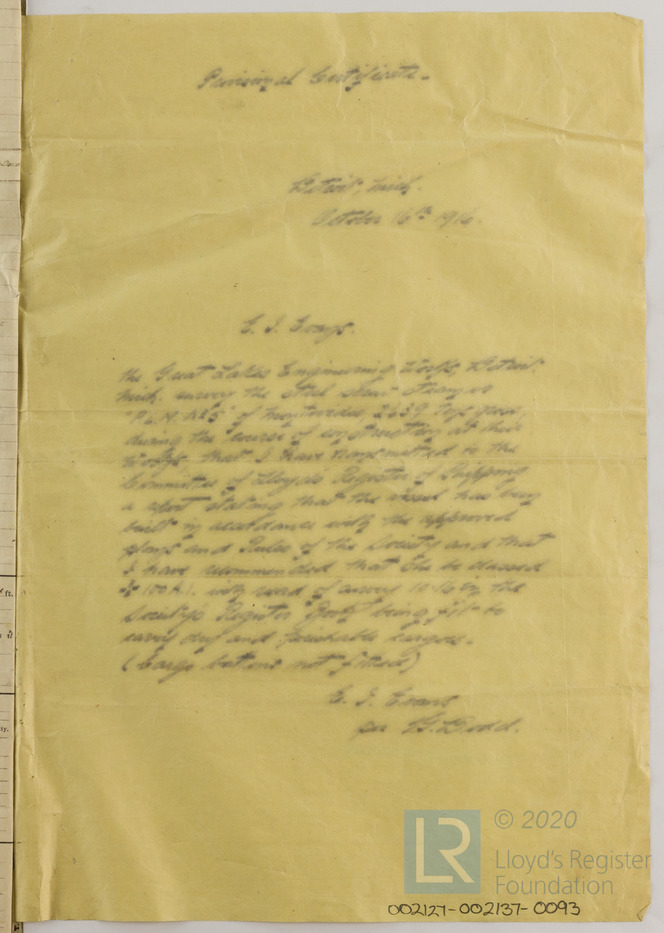 Provisional Certificate.
Detroit, Mich.
October 16th 1916.
E. J. Evans.
the Great Lakes Engineering Works, Detroit,
Mich. survey the steel screw steamer
of Montevideo, 2639 tons gross,
during the course of construction at their
Works, that I have transmitted to the
Committee of Lloyd's Register of Shipping
a report stating that the vessel has been
built in accordance with the approved
plans and Rules of the Society and that
I have recommended that she be classed
100A1. with record of survey 10-16 in the
Society's Register Book being fit to
carry dry and perishable cargoes.
(Cargo battens not fitted)
E. J. Evans
per G. Dodd.
LR
© 2020
Lloyd's Register
Foundation
002127-002137-0093